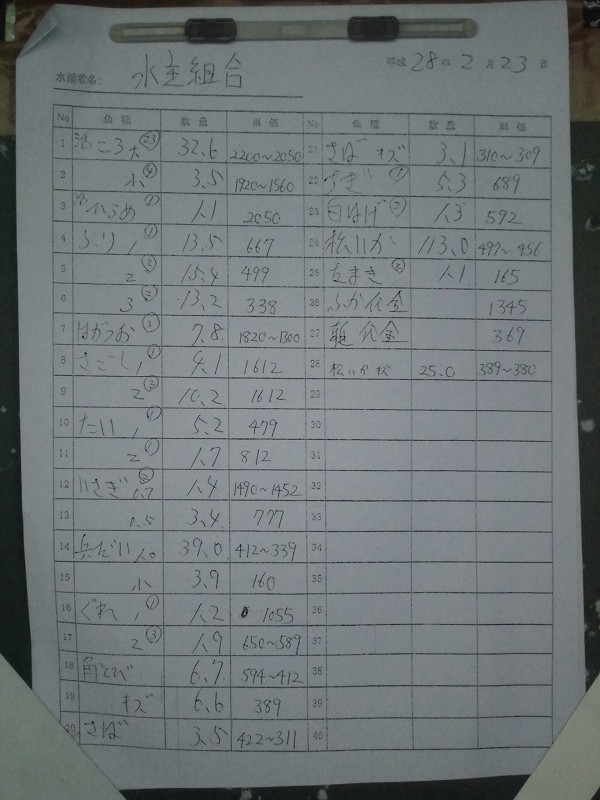 平成 28年 2月 23日
水揚者名: 水主組合
No 魚種 数量 単価 No 魚種 数量 単価
1 活ころ大 23 32.6 2200~2050 21 さば キズ 3.1 310~309
2 小 4 3.5 1920~1560 22 すぎ 1 5.3 689
3 活ひらめ 1 1.1 2050 23 白はげ 2 1.3 592
4 ぶり 1 1 13.5 667 24 松いか 113.0 497~456
5 2 3 15.4 499 25 たまき 2 1.1 165
6 3 2 13.2 338 26 ふか代金 1345
7 はがつお 3 7.8 1820~1300 27 代金 369
8 さごし 1 1 4.1 1612 28 松いかキズ 25.0 389~380
9 2 3 10.2 1612 29
10 たい 1 1 5.2 479 30
11 2 1 1.7 812 31
12 いさぎ 0.7 1.4 1490~1452 32
13 0.5 3.4 777 33
14 兵だい 1.0 39.0 412~339 34
15 小 3.9 160 35
16 ぐれ 1 1 1.2 1055 36
17 2 3 1.9 650~589 37
18 角とび 6.7 594~412 38
19 キズ 6.6 389 39
20 さば 3.5 422~311 40